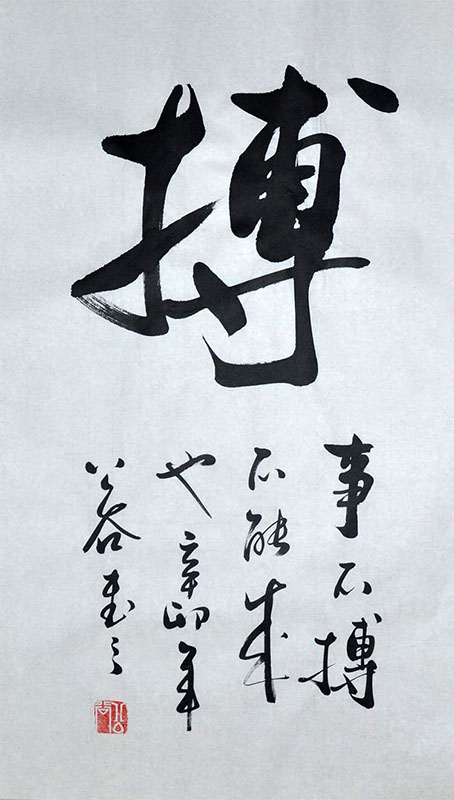 搏
事不搏
不能成
也辛卯年
書之